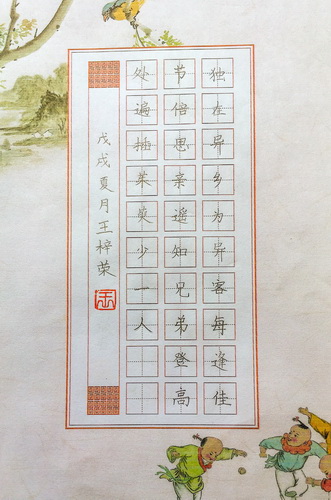 独在异乡为异客每逢佳
节倍思亲遥知兄弟登高
处遍插茱萸少一人
戊戌夏月王梓荣
王